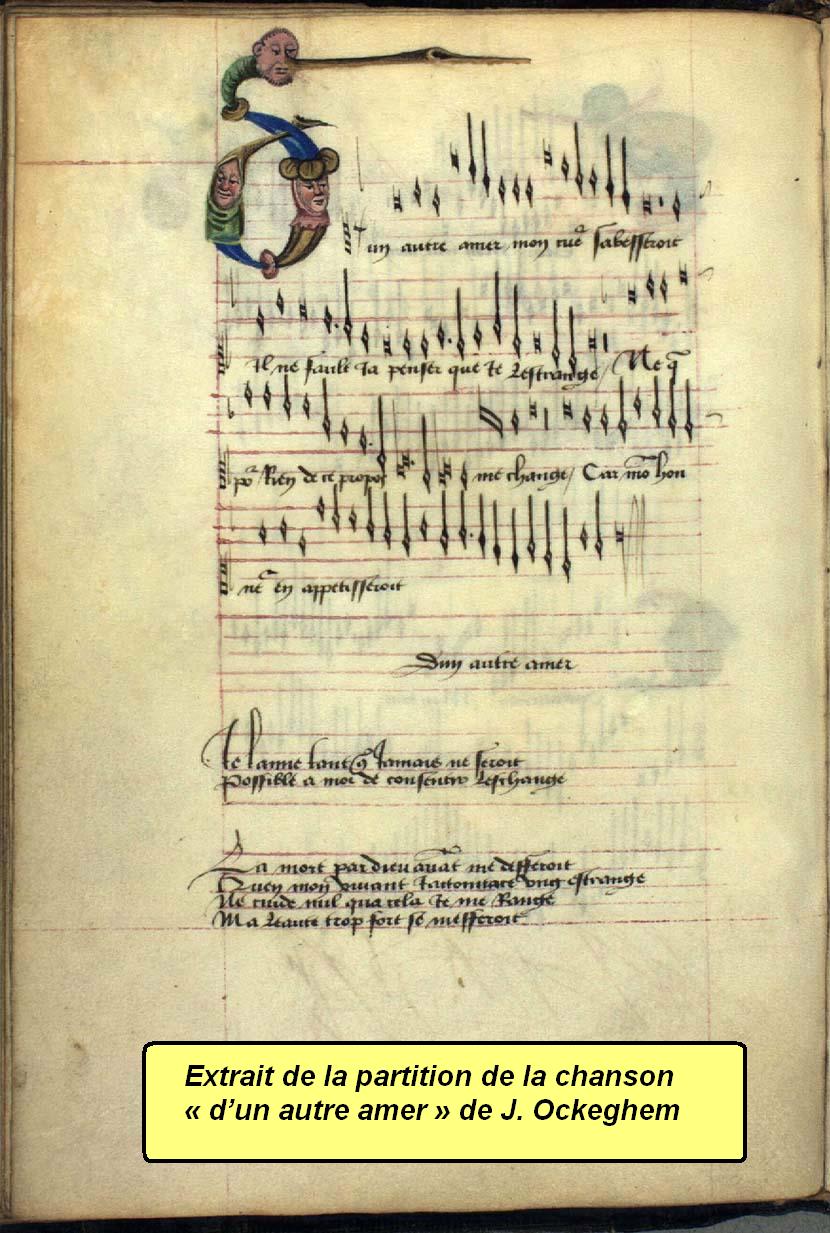 un autre amer mon cueˀ sabesseroit
Il ne fault ja penser que je lestrange / Ne q̄
poˀ Rien de ce propos me change / Car mō hon
neˀ en appetisseroit
Dun autre amer
Je lame tant q̄ Jamais ne seroit
Possible a moi de consentir leschange
La mort par dieu auāt me defferoit
Quen mon viuant Jacointace ung estrange
Ne cuide nul qua cela Je me Range
Ma leaute trop fort se mefferoit
Extrait de la partition de la chanson
« d’un autre amer » de J. Ockeghem